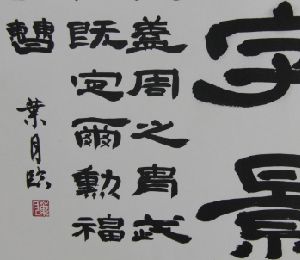 字景
蓋周之胄武
既定爾勳福
曹
葉月臨